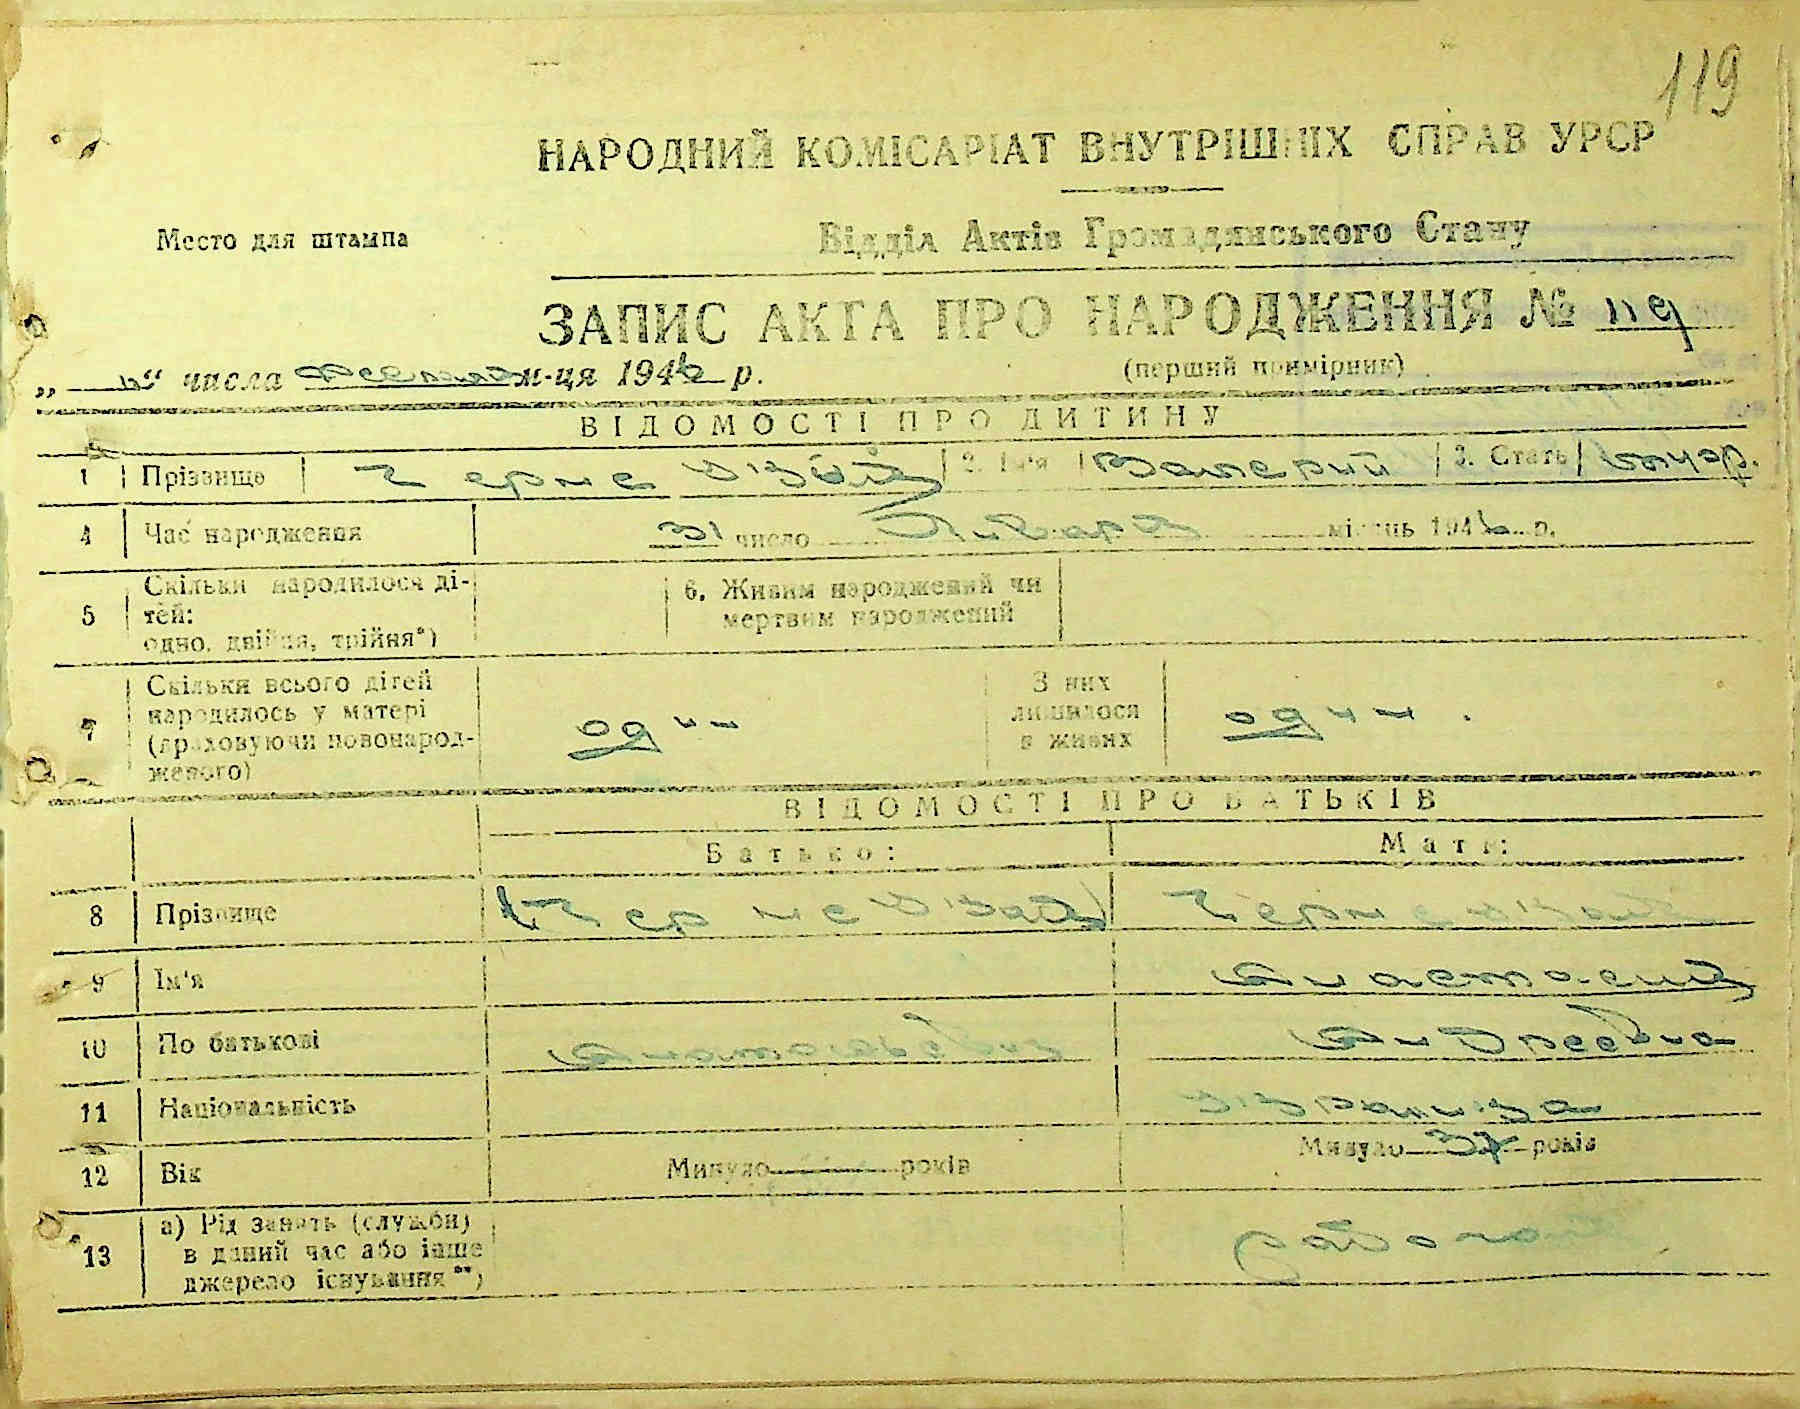 119
НАРОДНИЙ КОМІСАРІАТ ВНУТРІШНІХ СПРАВ УРСР
Место для штампа
Відділ Актів Громадянського Стану
ЗАПИС АКТА ПРО НАРОДЖЕННЯ № 119
„ " числа м-ця 1946 р.
(перший примірник)
ВІДОМОСТІ ПРО ДИТИНУ
1 Прізвище 2. Ім'я Валерий 3. Стать
4 Час народження 31 число Января місяць 1946 р.
5 Скільки народилося ді-
тей:
одно, двійня, трійня*)
6. Живим народжений чи
мертвим народжений
7 Скільки всього дітей
народилось у матері
(враховуючи новонарод-
женого)
один
З них
лишилося
в живих
один.
ВІДОМОСТІ ПРО БАТЬКІВ
Батько: Мати:
8 Прізвище
9 Ім'я Анастасия
10 По батькові Андреевна
11 Національність
12 Вік Минуло років Минуло 37 років
13 а) Рід занять (служби)
в даний час або інше
джерело існування**)